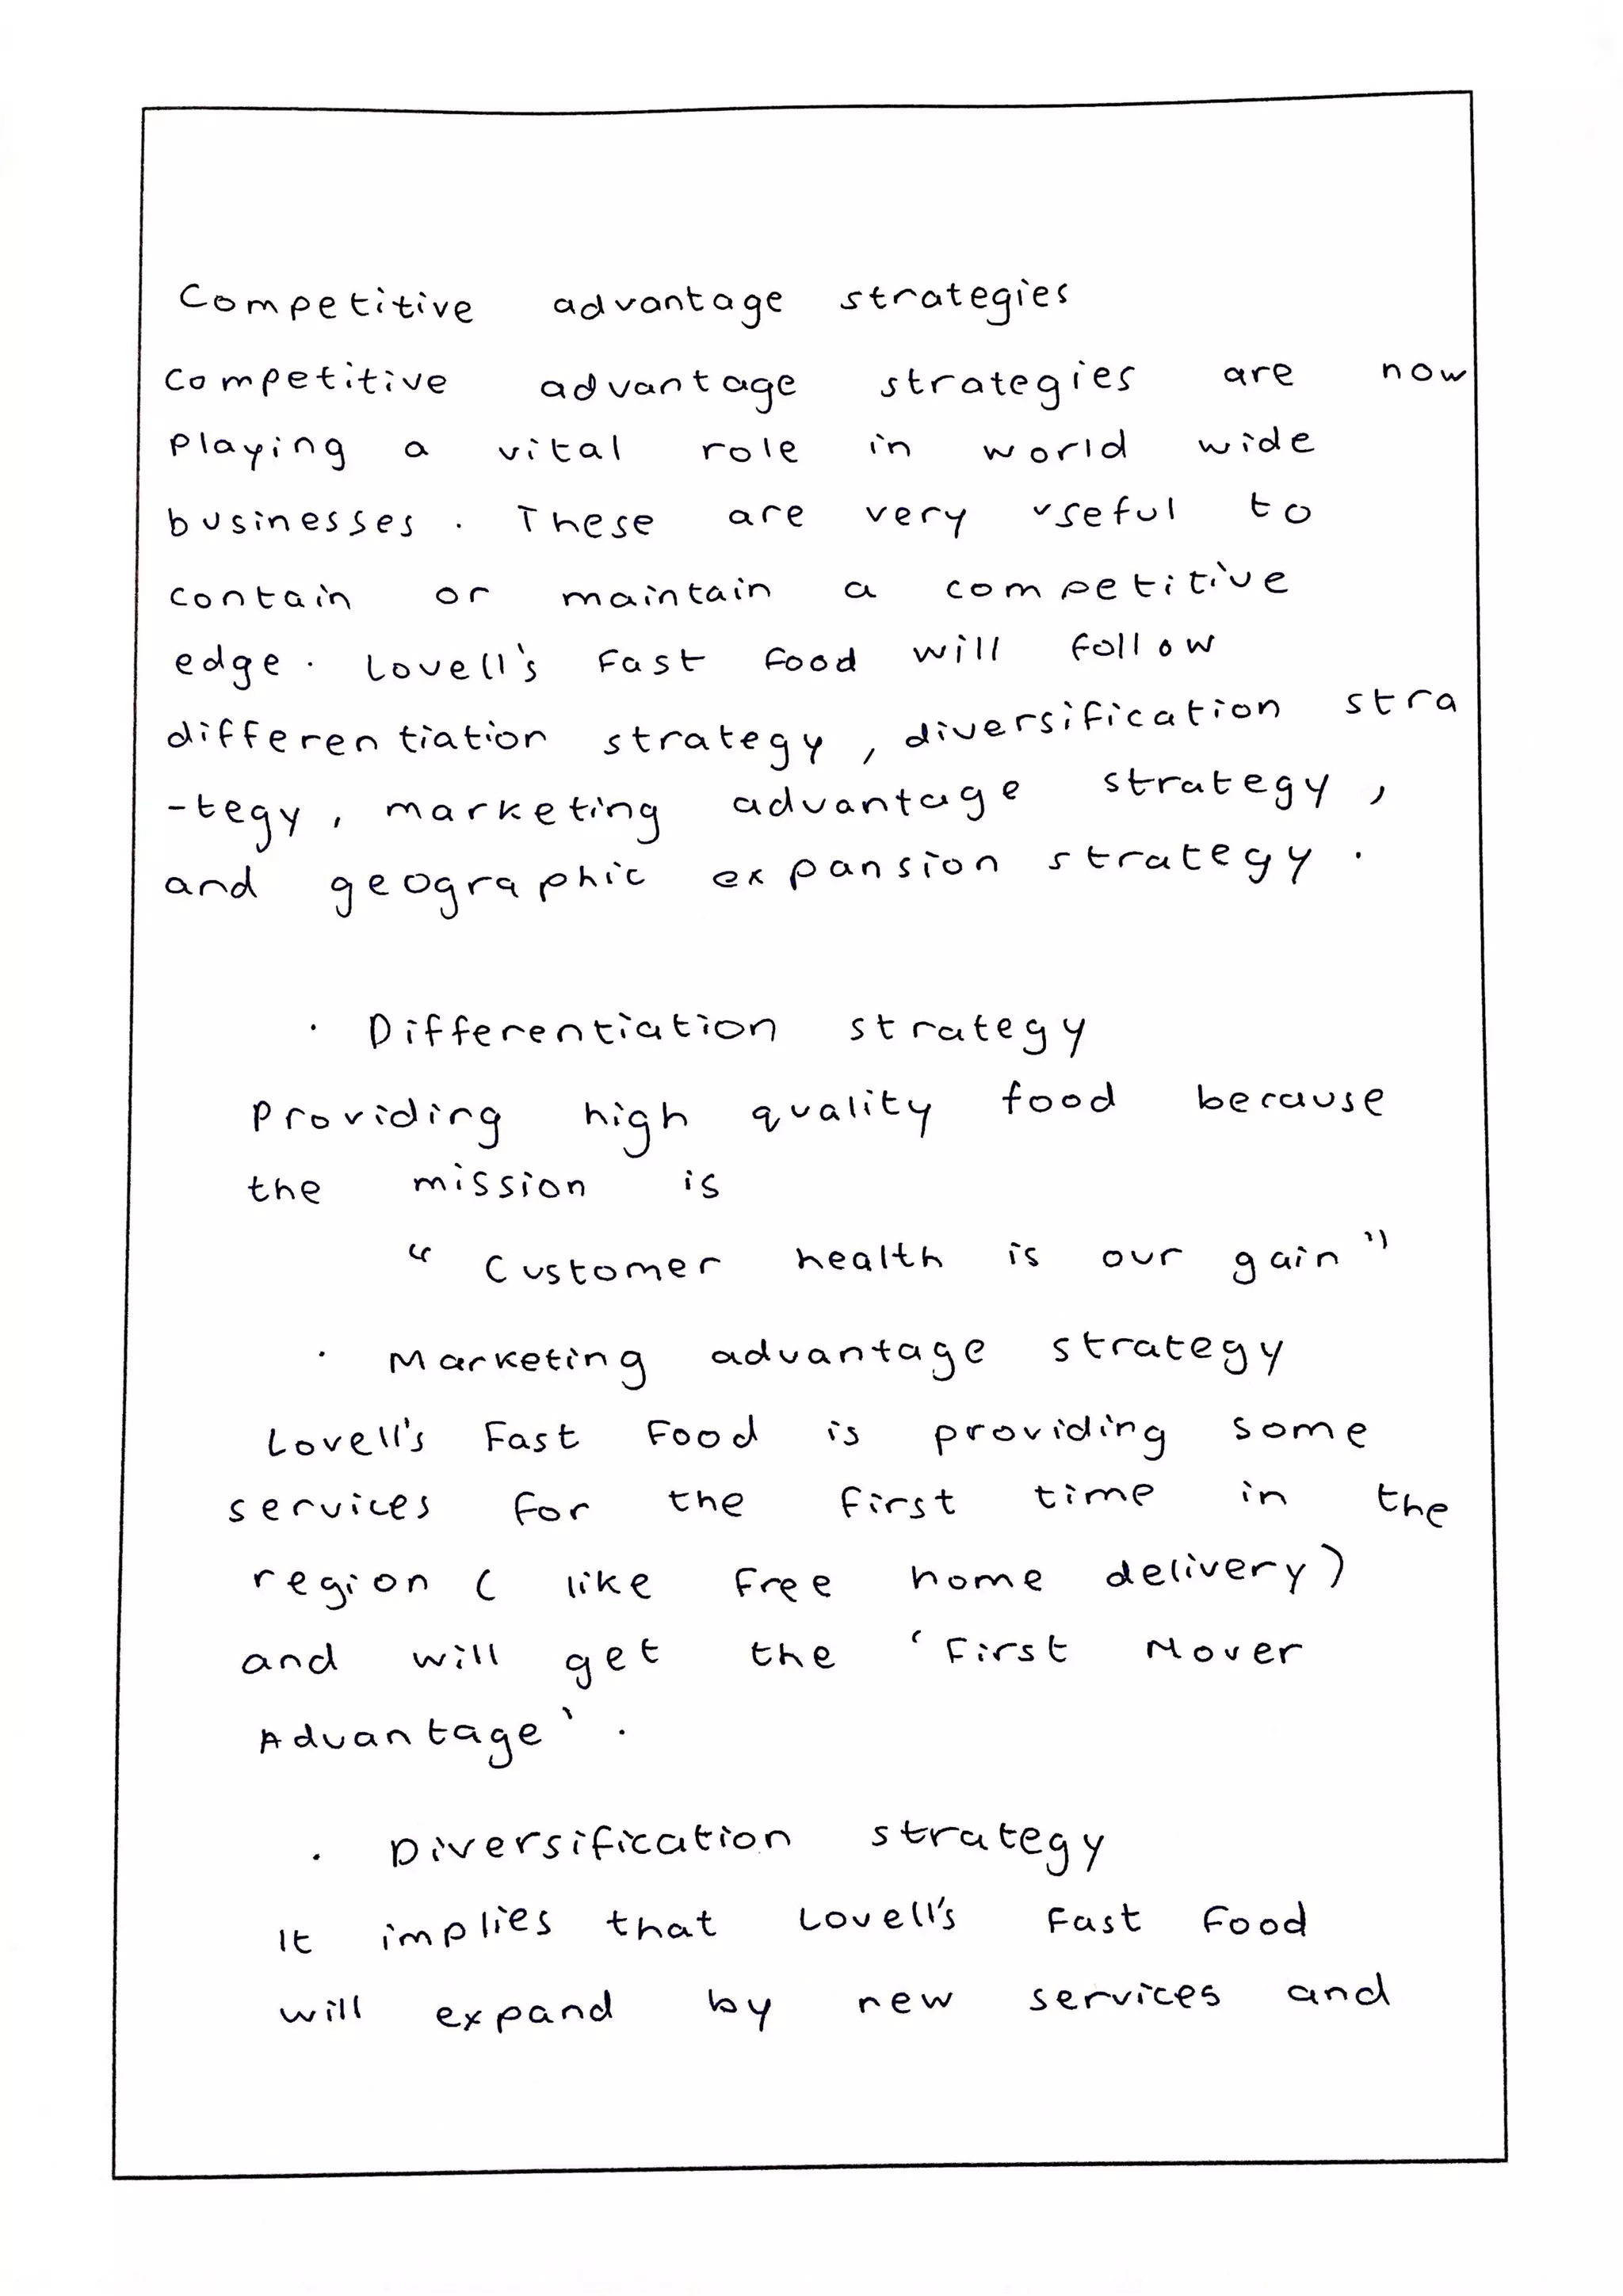 Competitive advantage strategies
Competitive advantage strategies are now
Playing a vital role in world wide
businesses. These are very useful to
contain or maintain a competitive
edge. Lovell's Fast Food will follow
differentiation strategy, diversification stra
-tegy, marketing advantage strategy,
and geographic expansion strategy.
· Differentiation strategy
Providing high quality food because
the mission is
“Customer health is our gain”
· Marketing advantage strategy
Lovell's Fast Food is providing some
services for the first time in the
region (like free home delivery)
and will get the ‘First Mover
Advantage’.
· Diversification strategy
It implies that Lovell's Fast Food
will expand by new services and